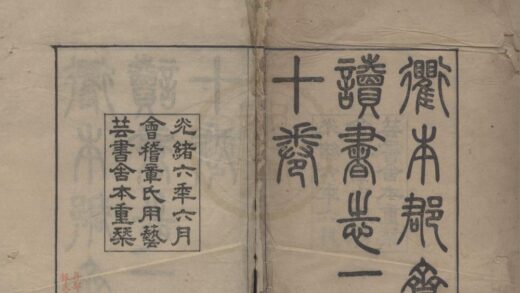 衢本郡齋
讀書志二
十卷
光緒六年六月
會稽章氏用藝
芸書舍本重栞